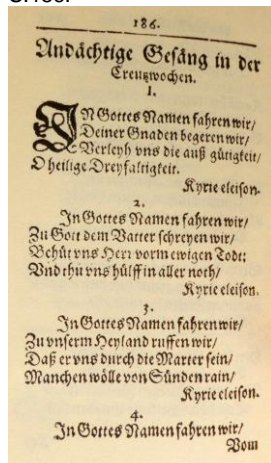 186.
Andächtige Gesäng in der
Creutzwochen.
1.
IN Gottes Namen fahren wir/
Deiner Gnaden begeren wir/
Verleyh vns die auß gütigkeit/
O heilige Dreyfaltigkeit.
Kyrie eleison.
2.
In Gottes Namen fahren wir/
Zu Gott dem Vatter schreyen wir/
Behüt vns Herr vorm ewigen Todt;
Vnd thu vns hülff in aller noth/
Kyrie eleison.
3.
In Gottes Namen fahren wir/
Zu vnserm Heyland ruffen wir/
Daß er vns durch die Marter sein/
Manchen wölle von Sünden rain/
Kyrie eleison.
4.
In Gottes Namen fahren wir/
Vom